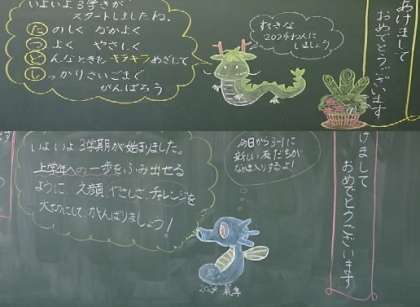 いよいよ3学きが
スタートしましたね。
たのしく なかよく
つよく やさしく
どんなときも キラキラ めざして
しっかりさいごまで
がんばろう
すてきな
2024ねんに
しましょう
あけまして
おめでとうございます
いよいよ3学期が始まりました。
上学年への一歩をふみ出せる
ように 笑顔、やさしさ、チャレンジを
大切にして がんばりましょう！
今日から3-1に
新しい友だちが
なかま入りするよ！
けまして
おめでとうございます